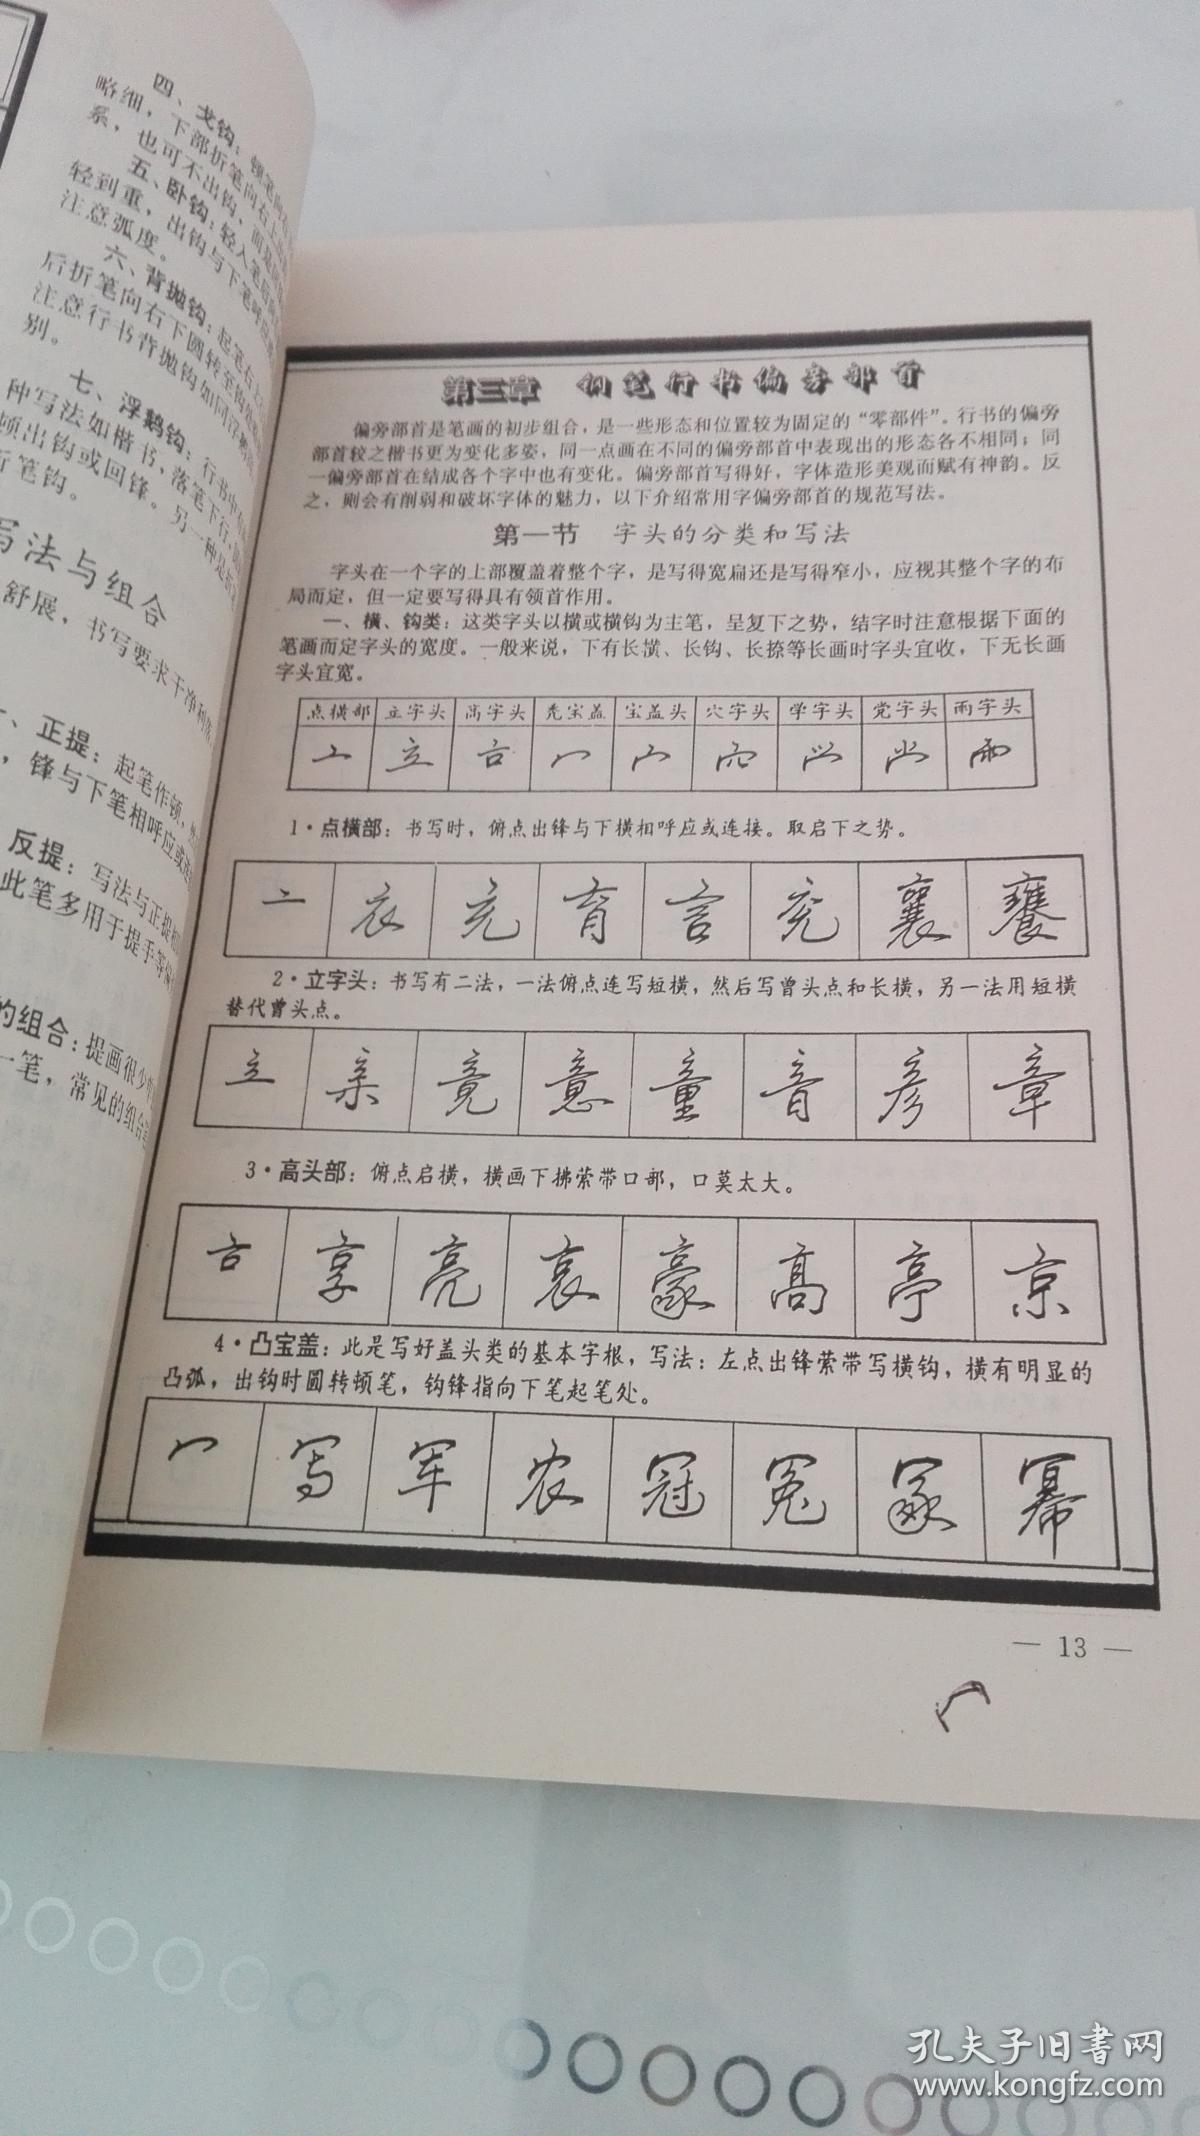 四、戈钩：顿笔向右
略细，下部折笔向右上出
系，也可不出钩，而是
五、卧钩：轻入笔后
轻到重，出钩与下笔呼应
注意弧度。
六、背抛钩：起笔右上
后折笔向右下圆转至钩处
注意行书背抛钩如同浮鹅
别。
七、浮鹅钩：行书中有
种写法如楷书、落笔下行，
顿出钩或回锋。另一种是
折笔钩。
写法与组合
舒展，书写要求干净利落
一、正提：起笔作顿，然
，锋与下笔相呼应或连
反提：写法与正提相
此笔多用于提手等偏
的组合：提画很少单
一笔，常见的组合
第三章 钢笔行书偏旁部首
偏旁部首是笔画的初步组合，是一些形态和位置较为固定的“零部件”。行书的偏旁
部首较之楷书更为变化多姿，同一点画在不同的偏旁部首中表现出的形态各不相同；同
一偏旁部首在结成各个字中也有变化。偏旁部首写得好，字体造形美观而赋有神韵。反
之，则会有削弱和破坏字体的魅力，以下介绍常用字偏旁部首的规范写法。
第一节 字头的分类和写法
字头在一个字的上部覆盖着整个字，是写得宽扁还是写得窄小，应视其整个字的布
局而定，但一定要写得具有领首作用。
一、横、钩类：这类字头以横或横钩为主笔，呈复下之势，结字时注意根据下面的
笔画而定字头的宽度。一般来说，下有长横、长钩、长捺等长画时字头宜收，下无长画
字头宜宽。
点横部 立字头 高字头 秃宝盖 宝盖头 穴字头 学字头 党字头 雨字头
亠 立 𠮛 冖 宀 穴 ⺍ 龸 雨
1·点横部：书写时，俯点出锋与下横相呼应或连接。取启下之势。
亠 衣 充 育 言 兖 襄 饔
2·立字头：书写有二法，一法俯点连写短横，然后写曾头点和长横，另一法用短横
替代曾头点。
立 亲 竟 意 童 音 彦 章
3·高头部：俯点启横，横画下拂萦带口部，口莫太大。
𠮛 享 亮 哀 豪 高 亭 京
4·凸宝盖：此是写好盖头类的基本字根，写法：左点出锋萦带写横钩，横有明显的
凸弧，出钩时圆转顿笔，钩锋指向下笔起笔处。
冖 写 军 农 冠 冤 冢 幂
— 13 —
孔夫子旧书网
www.kongfz.com